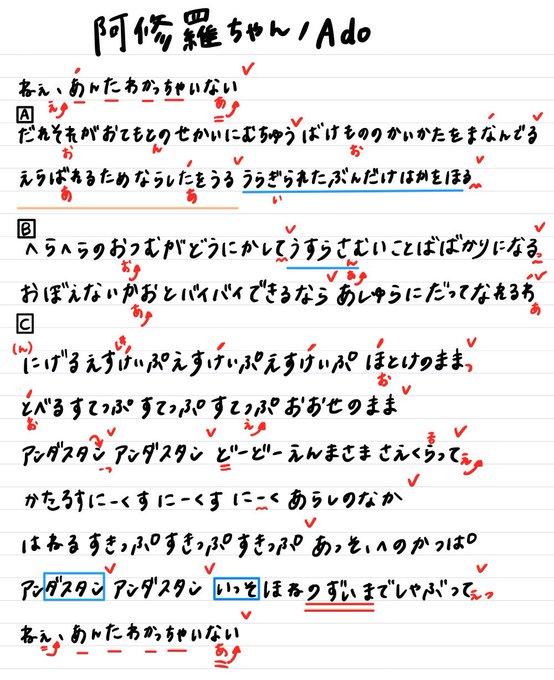 阿修羅ちゃん/Ado
ねぇ、あんたわかっちゃいない
え
あ
A
だれそれがおてもとのせかいにむちゅう ばけもののかいかたをまなんでる
お
ん
お
えらばれるためならしたをうる うらぎられたぶんだけはかをほる
あ
あ
い
B
へらへらのおつむがどうにかして うすらさむいことばばかりになる
お
ん
あ
っ
おぼえないかおとバイバイできるなら あしゅらにだってなれるお
あ
あ
C
(ん)
にげるえすけいぷ えすけいぷ えすけいぷ ほとけのまま
お
っ
とべるすてっぷ すてっぷ すてっぷ おおせのまま
お
え
アンダスタン アンダスタン どーどーえんまさまさえくらって
っ
え
かたるすにーくすにーくすにーく あらしのなか
はねるすきっぷ すきっぷ すきっぷ あっそ、へのかっぱ
アンダスタン アンダスタン いっそほねのずいまでしゃぶって
えっ
ねぇ、あんたわかっちゃいない
え
あ